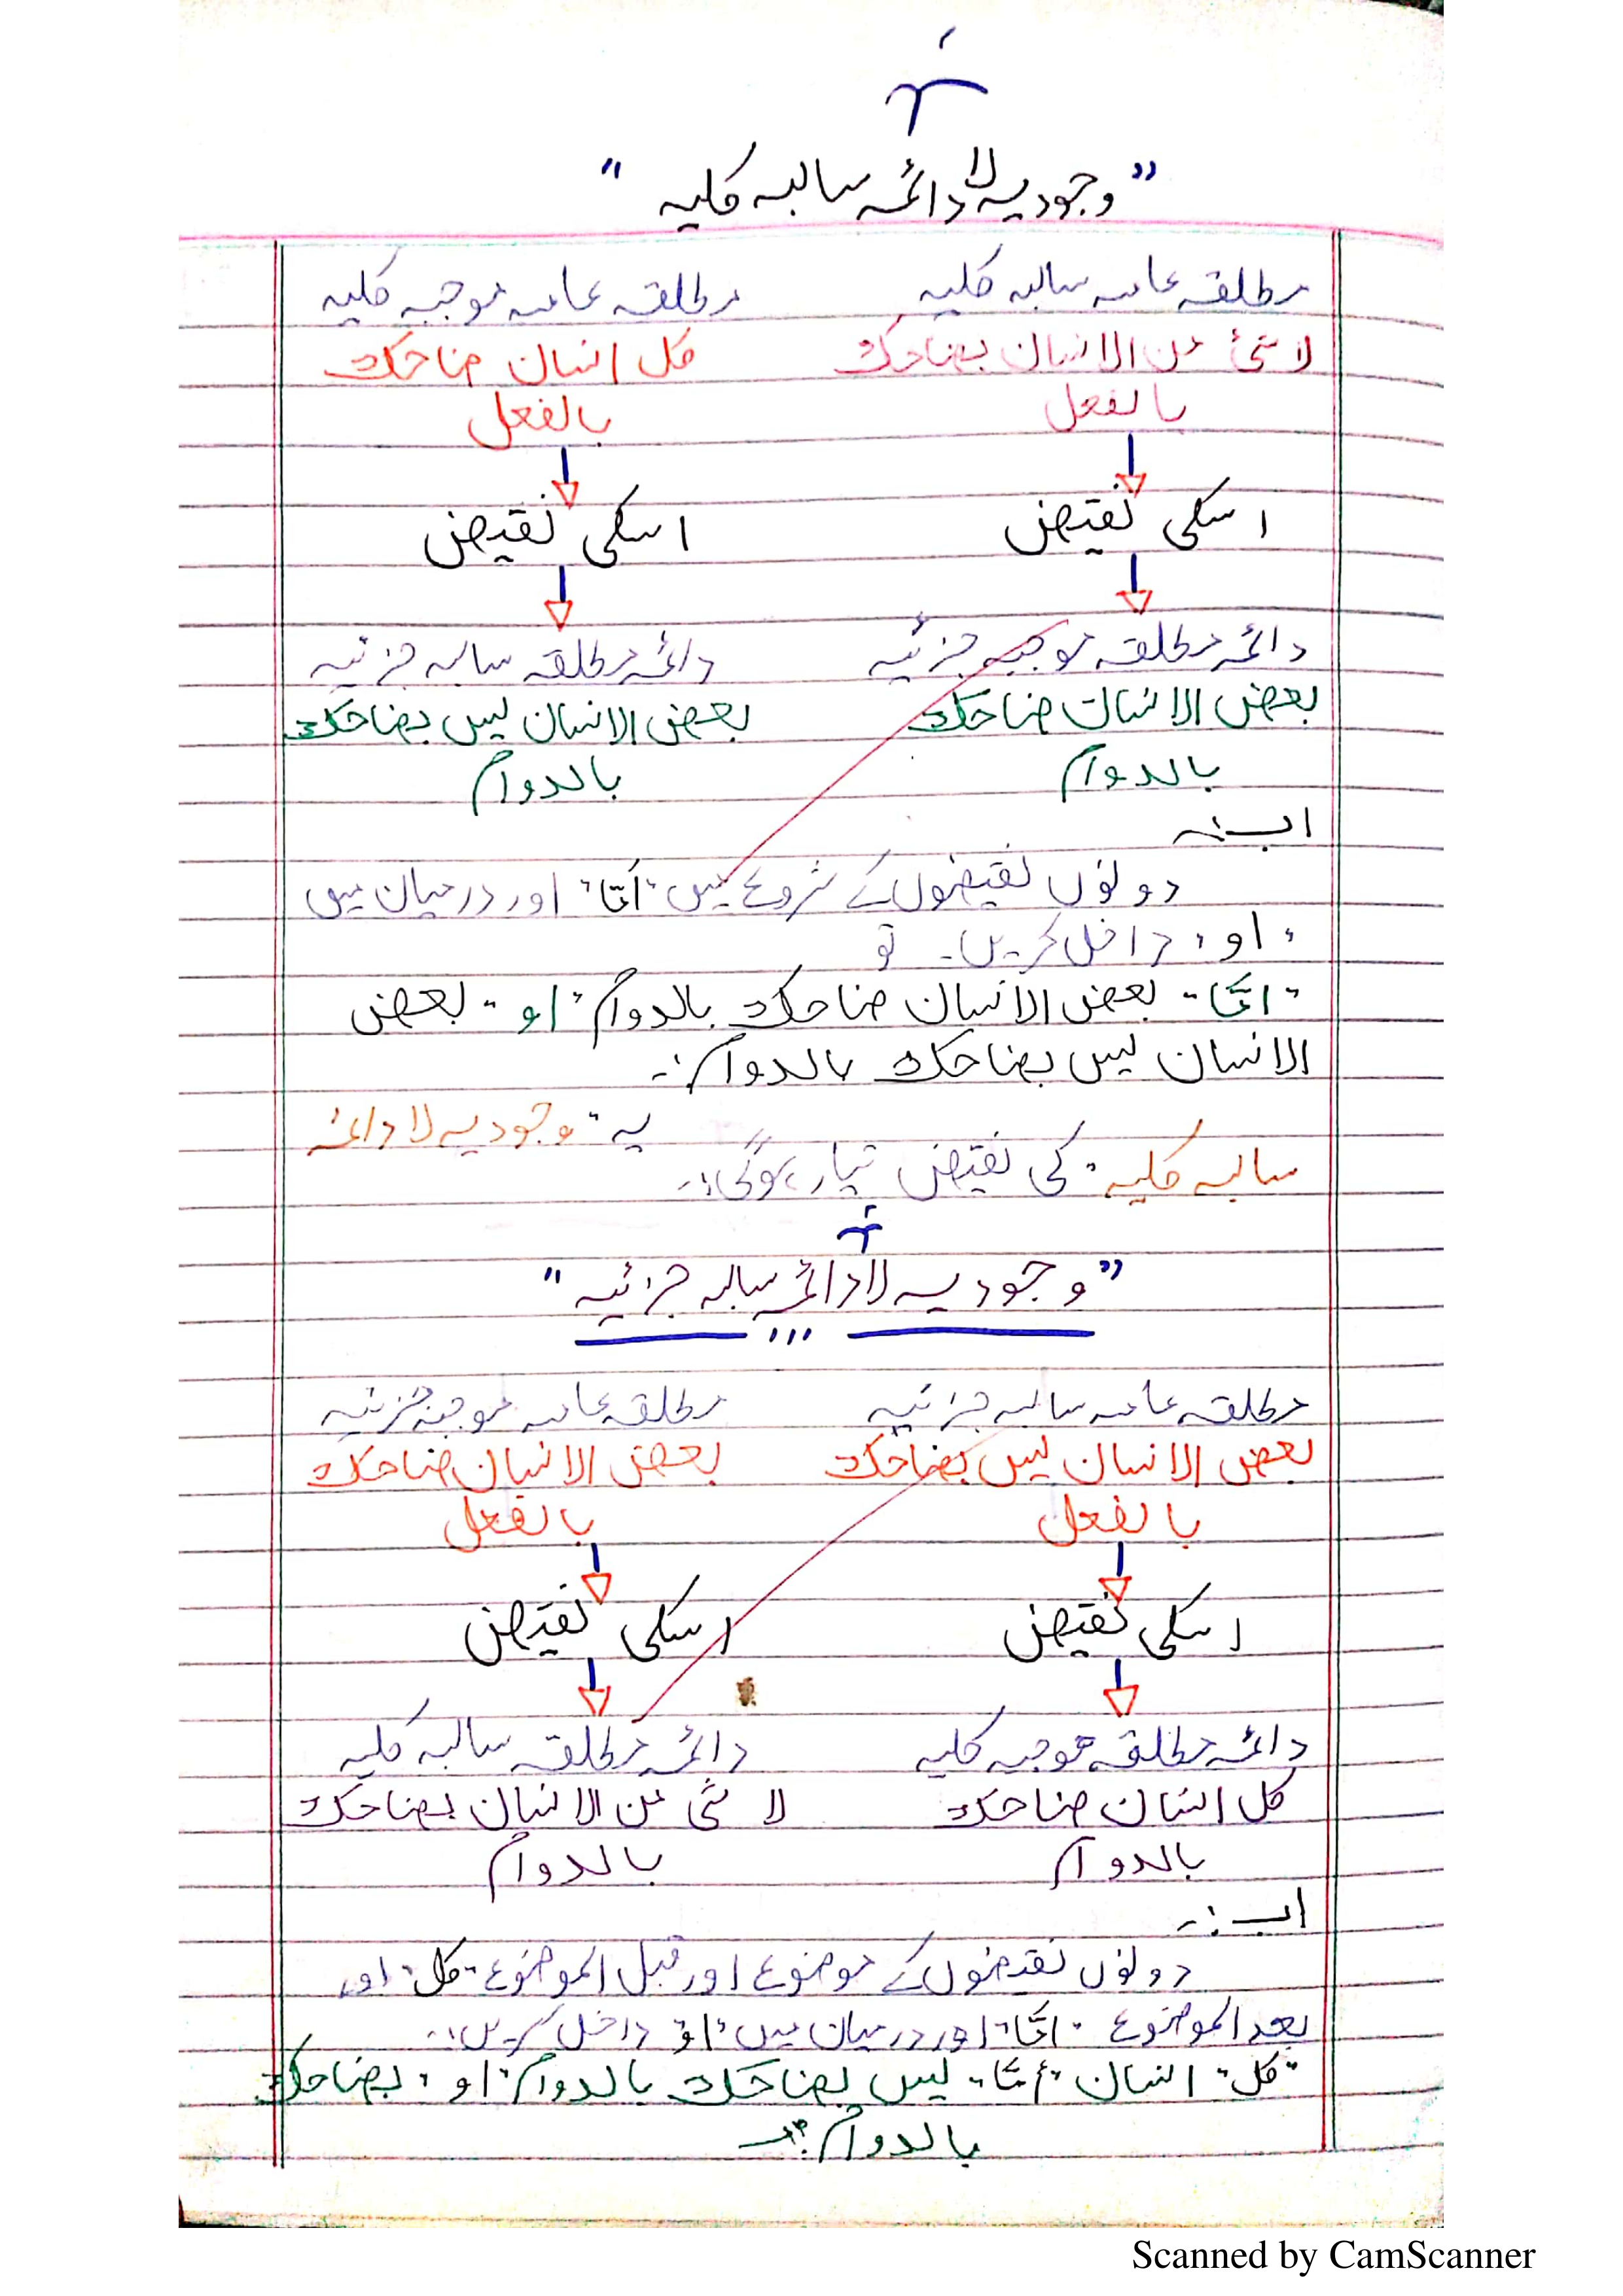 "وجودیہ لا دائمہ سالبہ کلیہ"
مطلقہ عامہ سالبہ کلیہ
لا شئ من الانسان بضاحك
بالفعل
اسکی نقیض
دائمہ مطلقہ موجبہ جزئیہ
بعض الانسان ضاحك
بالدوام
مطلقہ عامہ موجبہ کلیہ
کل انسان ضاحك
بالفعل
اسکی نقیض
دائمہ مطلقہ سالبہ جزئیہ
بعض الانسان ليس بضاحك
بالدوام
اب:۔
دونوں نقیضوں کے شروع میں "اَمّا" اور درمیان میں
"او" داخل کریں۔ تو
"امّا" بعض الانسان ضاحك بالدوام "او" بعض
الانسان ليس بضاحك بالدوام:۔
یہ "وجودیہ لا دائمہ
سالبہ کلیہ" کی نقیض تیار ہوگی:۔
"وجودیہ لا دائمہ سالبہ جزئیہ"
مطلقہ عامہ سالبہ جزئیہ
بعض الانسان ليس بضاحك
بالفعل
اسکی نقیض
دائمہ مطلقہ موجبہ کلیہ
کل انسان ضاحك
بالدوام
مطلقہ عامہ موجبہ جزئیہ
بعض الانسان ضاحك
بالفعل
اسکی نقیض
دائمہ مطلقہ سالبہ کلیہ
لا شئ من الانسان بضاحك
بالدوام
اب:۔
دونوں نقیضوں کے موضوع اور قبل الموضوع "کل" اور
بعد الموضوع "امّا" اور درمیان میں "او" داخل کریں:۔
"کل" انسان "أمّا" ليس بضاحك بالدوام "او" بضاحك
بالدوام:۔
Scanned by CamScanner